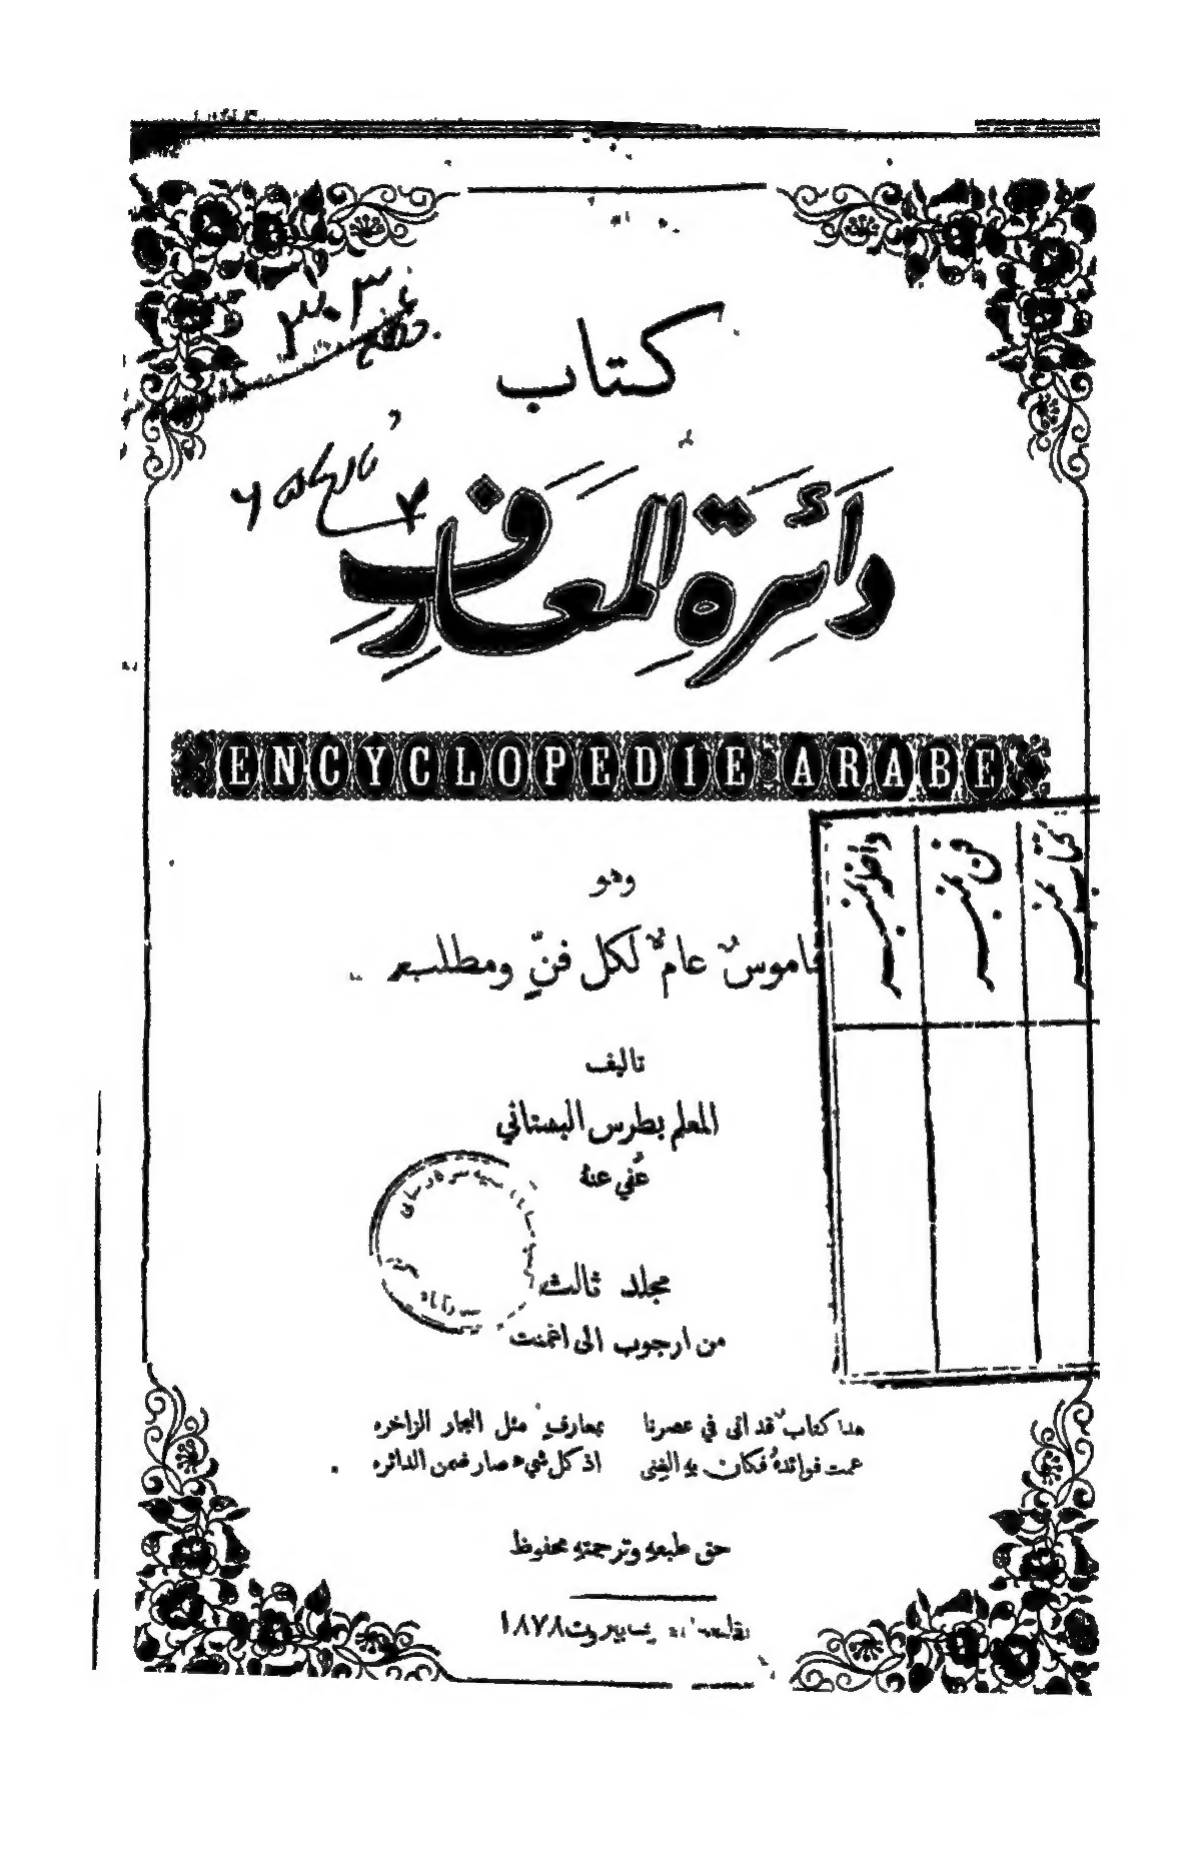 ٣٠٣
كتاب
دَائِرَةُ المَعَارِف
ENCYCLOPEDIE ARABE
وهو
قاموسٌ عامٌّ لكل فنٍّ ومطلبٍ
تاليف
المعلم بطرس البستاني
عُفي عنهُ
مجلد ثالث
من ارجوب الى اغمنت
هذا كتابٌ قد اتى في عصرنا بمعارفٍ مثل البحار الزاخره
عمت فوائدهُ فكان بهِ الغنى اذ كل شيء صار ضمن الدائره
حق طبعهِ وترجمتهِ محفوظ
بيروت ١٨٧٨
داخلہ نمبر
فن نمبر
کتاب نمبر